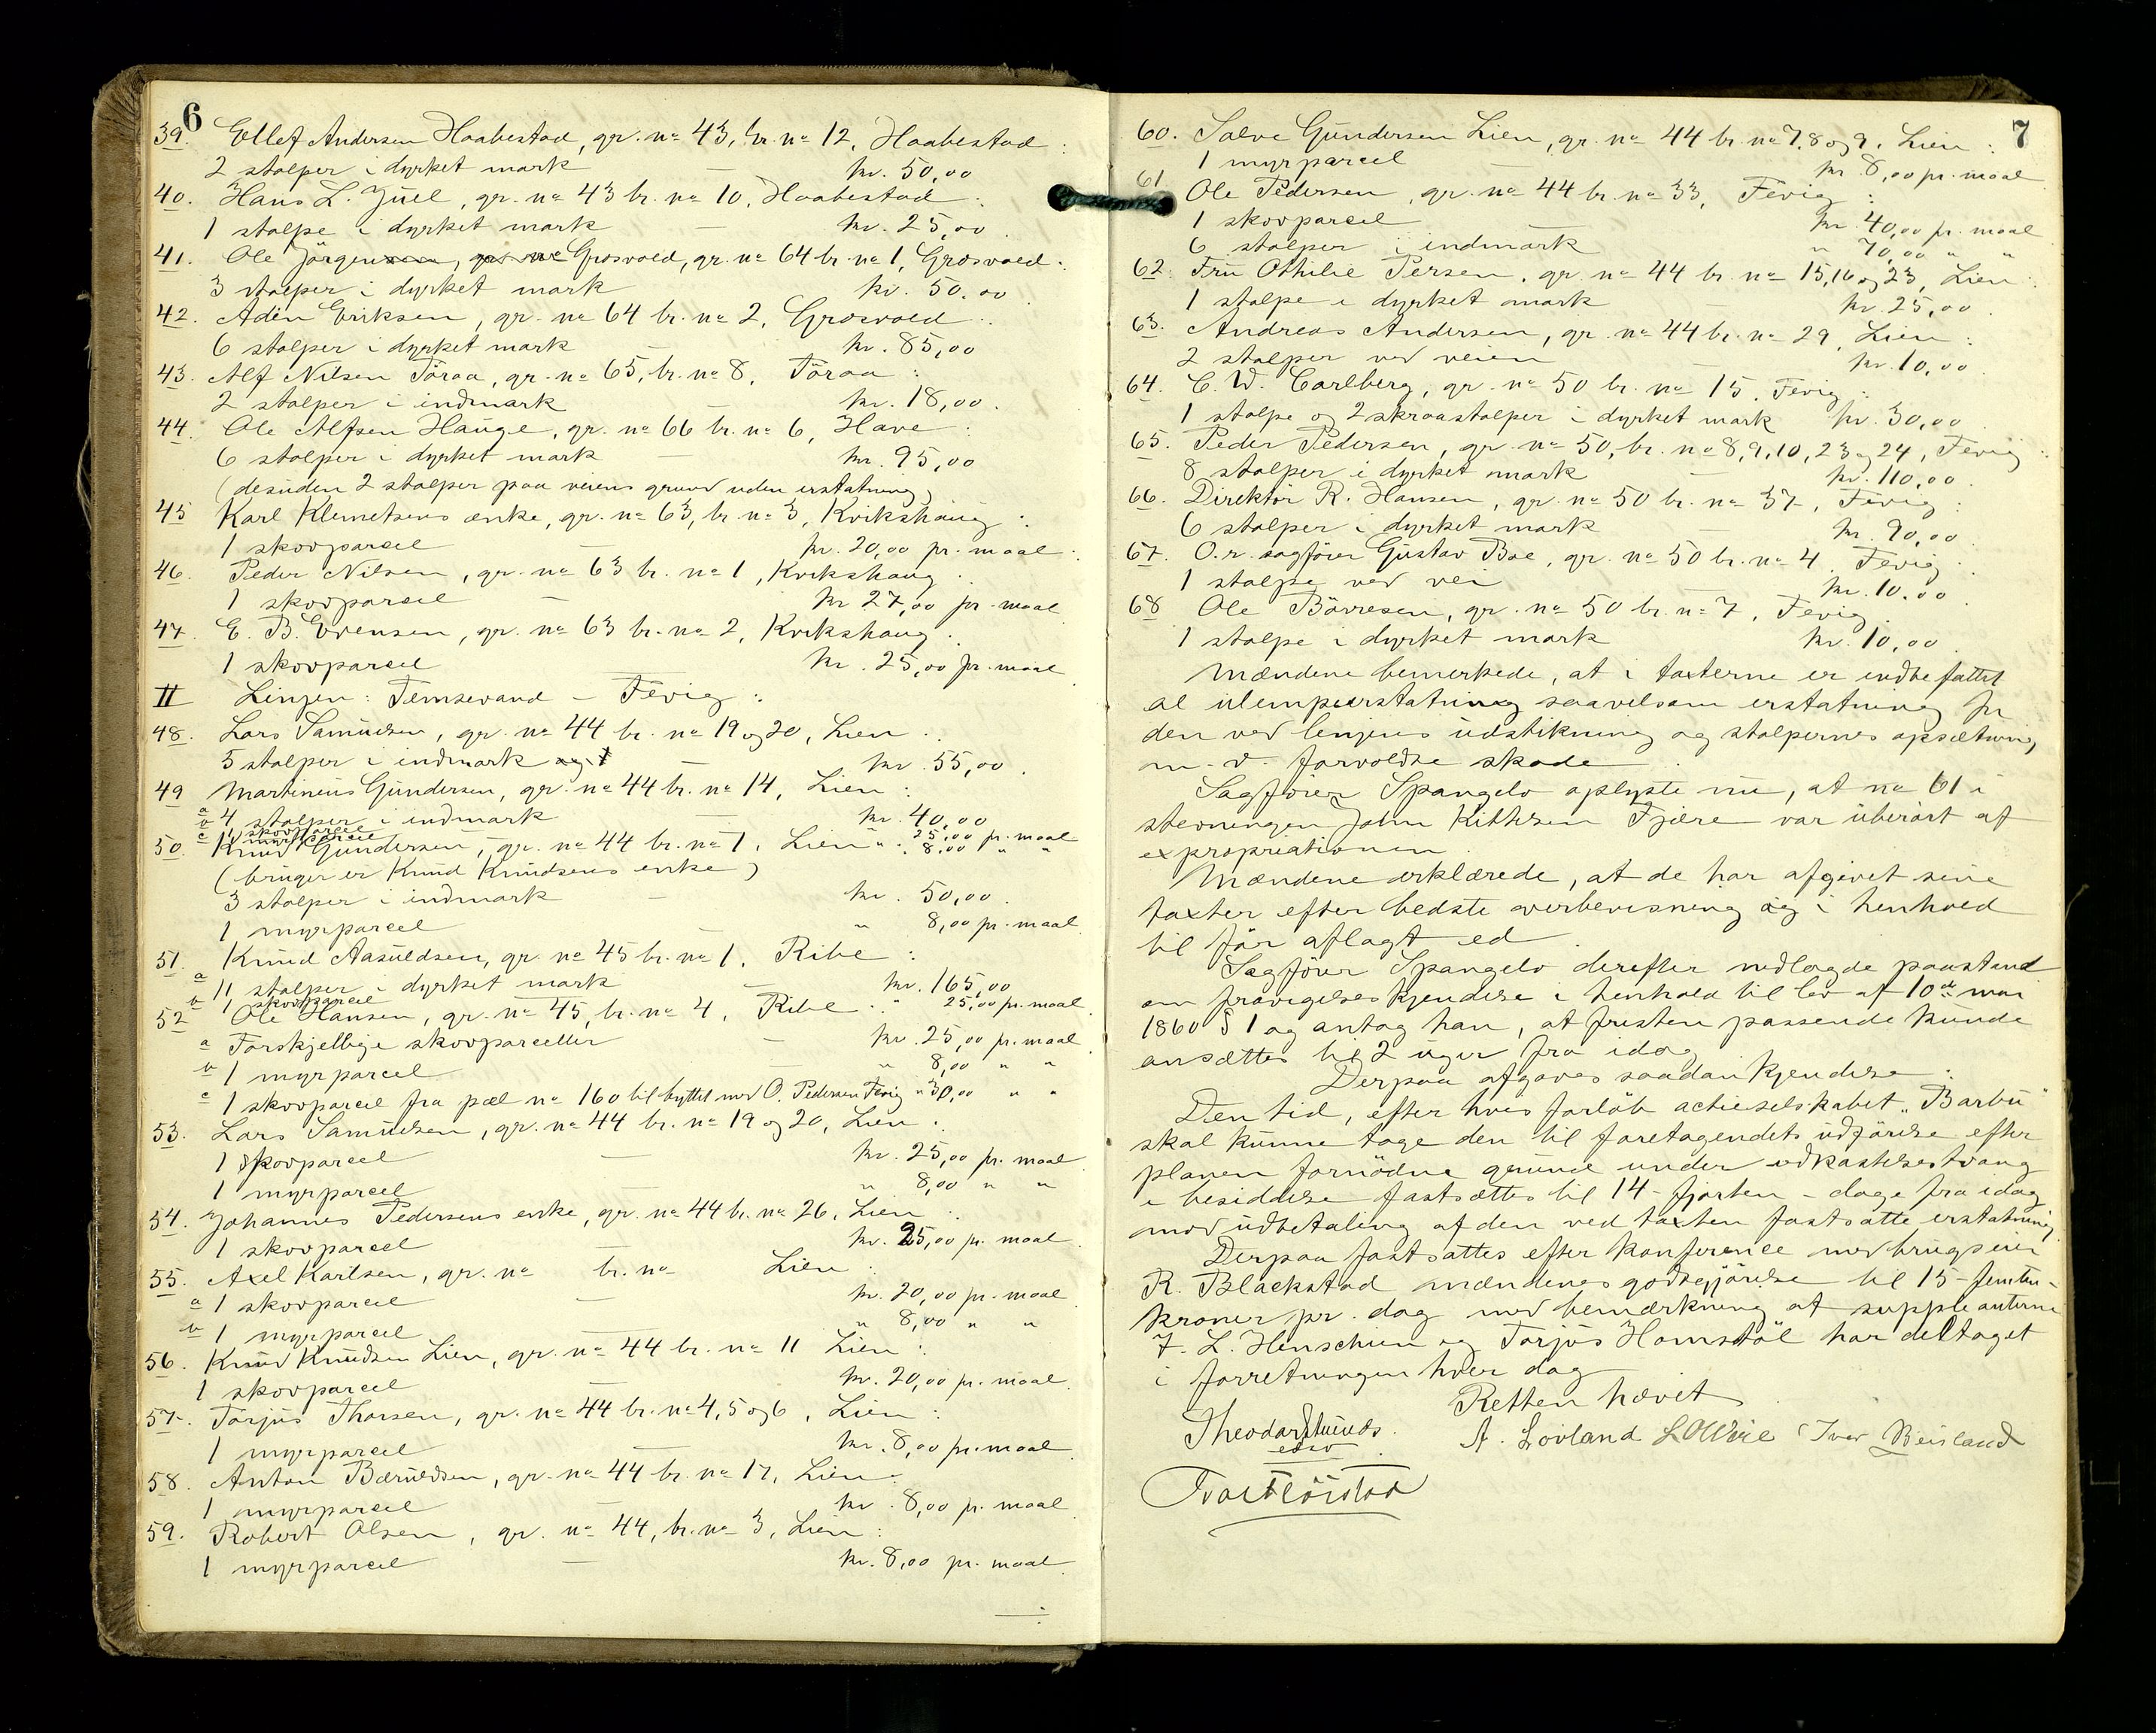 6
39. Ellef Andersen Haabestad, gr. no 43, br. no 12, Haabestad :
2 stolper i dyrket mark — kr. 50,00
40. Hans L. Juel, gr. no 43 br. no 10, Haabestad :
1 stolpe i dyrket mark — kr. 25,00
41. Ole Jørgensen, gr. no Grosvold, gr. no 64 br. no 1, Grosvold :
3 stolper i dyrket mark kr. 50,00
42. Aden Eriksen, gr. no 64 br. no 2, Grosvold :
6 stolper i dyrket mark — kr. 85,00
43. Alf Nilsen Töraa, gr. no 65, br. no 8, Töraa :
2 stolper i indmark — kr. 18,00
44. Ole Alfsen Hauge, gr. no 66 br. no 6, Have :
6 stolper i dyrket mark — kr. 95,00
(desuden 2 stolper paa veiens grund uden erstatning)
45 Karl Klemetsens enke, gr. no 63, br. no 3, Kvikshaug :
1 skovparcel — kr. 20,00 pr. maal
46. Peder Nilsen, gr. no 63 br. no 1, Kvikshaug :
1 skovparcel — kr 27,00 pr. maal
47. E. B. Evensen, gr. no 63 br. no 2, Kvikshaug :
1 skovparcel kr. 25,00 pr. maal
II Linjen : Temsevand — Fevig :
48. Lars Samuelsen, gr. no 44 br. no 19 og 20, Lien :
5 stolper i indmark og 1 — kr. 55,00
49 Martinius Gundersen, gr. no 44 br. no 14, Lien :
a 4 stolper i indmark — kr. 40,00
b 1 skovparcel " 25,00 pr. maal
c 1 myrparcel " 8,00 " "
50. Knud Gundersen, gr. no 44 br. no 1, Lien
(bruger er Knud Knudsens enke)
3 stolper i indmark — kr. 50,00
1 myrparcel — " 8,00 pr. maal
51. Knud Aasuldsen, gr. no 45 br. no 1, Ribe :
a 11 stolper i dyrket mark — kr. 165,00
b 1 skovparcel " 25,00 pr. maal
52 Ole Hansen, gr. no 45, br. no 4, Ribe :
a Forskjellige skovparceller — kr. 25,00 pr. maal
b 1 myrparcel — " 8,00 " "
c 1 skovparcel fra pæl no 160 til byttet med O. Pedersen Fevig " 30,00 " "
53. Lars Samuelsen, gr. no 44 br. no 19 og 20, Lien :
1 skovparcel — kr. 25,00 pr. maal
1 myrparcel — " 8,00 " "
54. Johannes Pedersens enke, gr. no 44 br. no 26, Lien :
1 skovparcel — kr. 25,00 pr. maal
55. Axel Karlsen, gr. no br. no Lien :
a 1 skovparcel — kr. 20,00 pr. maal
b 1 myrparcel — " 8,00 " "
56. Knud Knudsen Lien, gr. no 44 br. no 11 Lien :
1 skovparcel — kr. 20,00 pr. maal
57. Torjus Thorsen, gr. no 44 br. no 4, 5 og 6, Lien :
1 myrparcel — kr. 8,00 pr. maal
58. Anton Bæruldsen, gr. no 44 br. no 17, Lien :
1 myrparcel — kr. 8,00 pr. maal
59. Robert Olsen, gr. no 44, br. no 3, Lien :
1 myrparcel — kr. 8,00 pr. maal
7
60. Salve Gundersen Lien, gr. no 44 br. no 7, 8 og 9, Lien :
1 myrparcel — kr. 8,00 pr. maal
61 Ole Pedersen, gr. no 44 br. no 33, Fevig :
1 skovparcel — kr. 40,00 pr. maal
6 stolper i indmark " 70,00 " "
62. Fru Othilie Persen, gr. no 44 br. no 15, 16 og 23, Lien :
1 stolpe i dyrket mark — kr 25,00
63. Andreas Andersen, gr. no 44 br. no 29, Lien :
2 stolper ved veien — kr. 10,00
64. C. W. Carlberg, gr. no 50 br. no 15, Fevig :
1 stolpe og 2 skraastolper i dyrket mark kr. 30,00
65. Peder Pedersen, gr. no 50, br. no 8, 9, 10, 23 og 24, Fevig :
8 stolper i dyrket mark — kr. 110,00
66. Direktör R. Hansen, gr. no 50 br. no 37, Fevig :
6 stolper i dyrket mark kr. 90,00
67. O.r. sagförer Gustav Boe, gr. no 50 br. no 4 Fevig :
1 stolpe ved vei — kr. 10,00
68 Ole Börresen, gr. no 50 br. no 7, Fevig
1 stolpe i dyrket mark kr. 10,00
Mændene bemerkede, at i taxterne er indbefattet
al ulempeerstatning saavelsom erstatning for
den ved linjens udstikning og stolpernes opsætning
m. v. forvoldte skade.
Sagförer Spangelo oplyste nu, at no 61 i
stevningen John Kittelsen Fjære var uberört af
expropriationen.
Mændene erklærede, at de har afgivet sine
taxter efter bedste overbevisning og i henhold
til för aflagt ed.
Sagförer Spangelo derefter nedlagde paastand
om fravigelseskjendelse i henhold til lov af 10de mai
1860 § 1 og antog han, at fristen passende kunde
ansættes til 2 uger fra idag.
Derpaa afgaves saadan Kjendelse :
Den tid, efter hvis forløb actieselskabet "Barbu"
skal kunne tage den til foretagendets udförelse efter
planen fornödne grund under udkastelsestvang
i besiddelse fastsættes til 14 - fjorten - dage fra idag
mod udbetaling af den ved taxten fastsatte erstatning.
Derpaa fastsattes efter konference med brugseier
R. Blackstad mændenes godtgjörelse til 15 - femten -
kroner pr. dag med bemærkning at suppleanterne
F. L. Henschien og Torjus Homstöl har deltaget
i forretningen hver dag
Retten hævet
Theodor
edsv
A. Lovland Iver Beisland